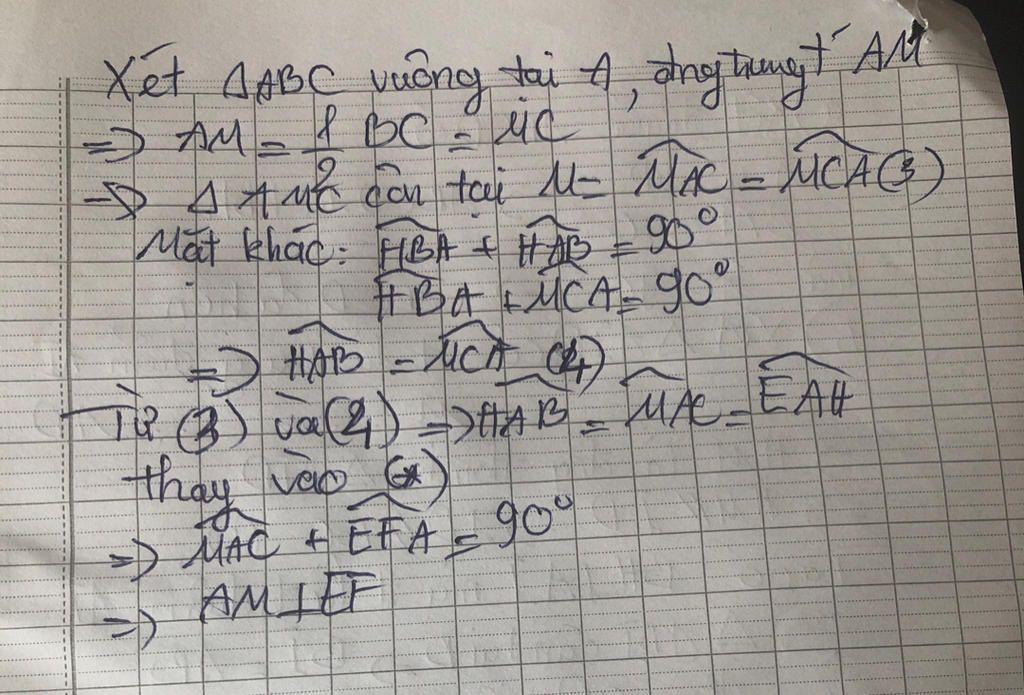 Xét ΔABC vuông tại A, đng trung t' AM
=> AM = 1/2 BC = MC
=> Δ AMC cân tại M => \widehat{MAC} = \widehat{MCA} (3)
Mặt khác: \widehat{HBA} + \widehat{HAB} = 90°
\widehat{HBA} + \widehat{MCA} = 90°
=> \widehat{HAB} = \widehat{MCA} (4)
Từ (3) và (4) => \widehat{HAB} = \widehat{MAC} = \widehat{EAH}
thay vào (*)
=> \widehat{MAC} + \widehat{EFA} = 90°
=> AM ⊥ EF